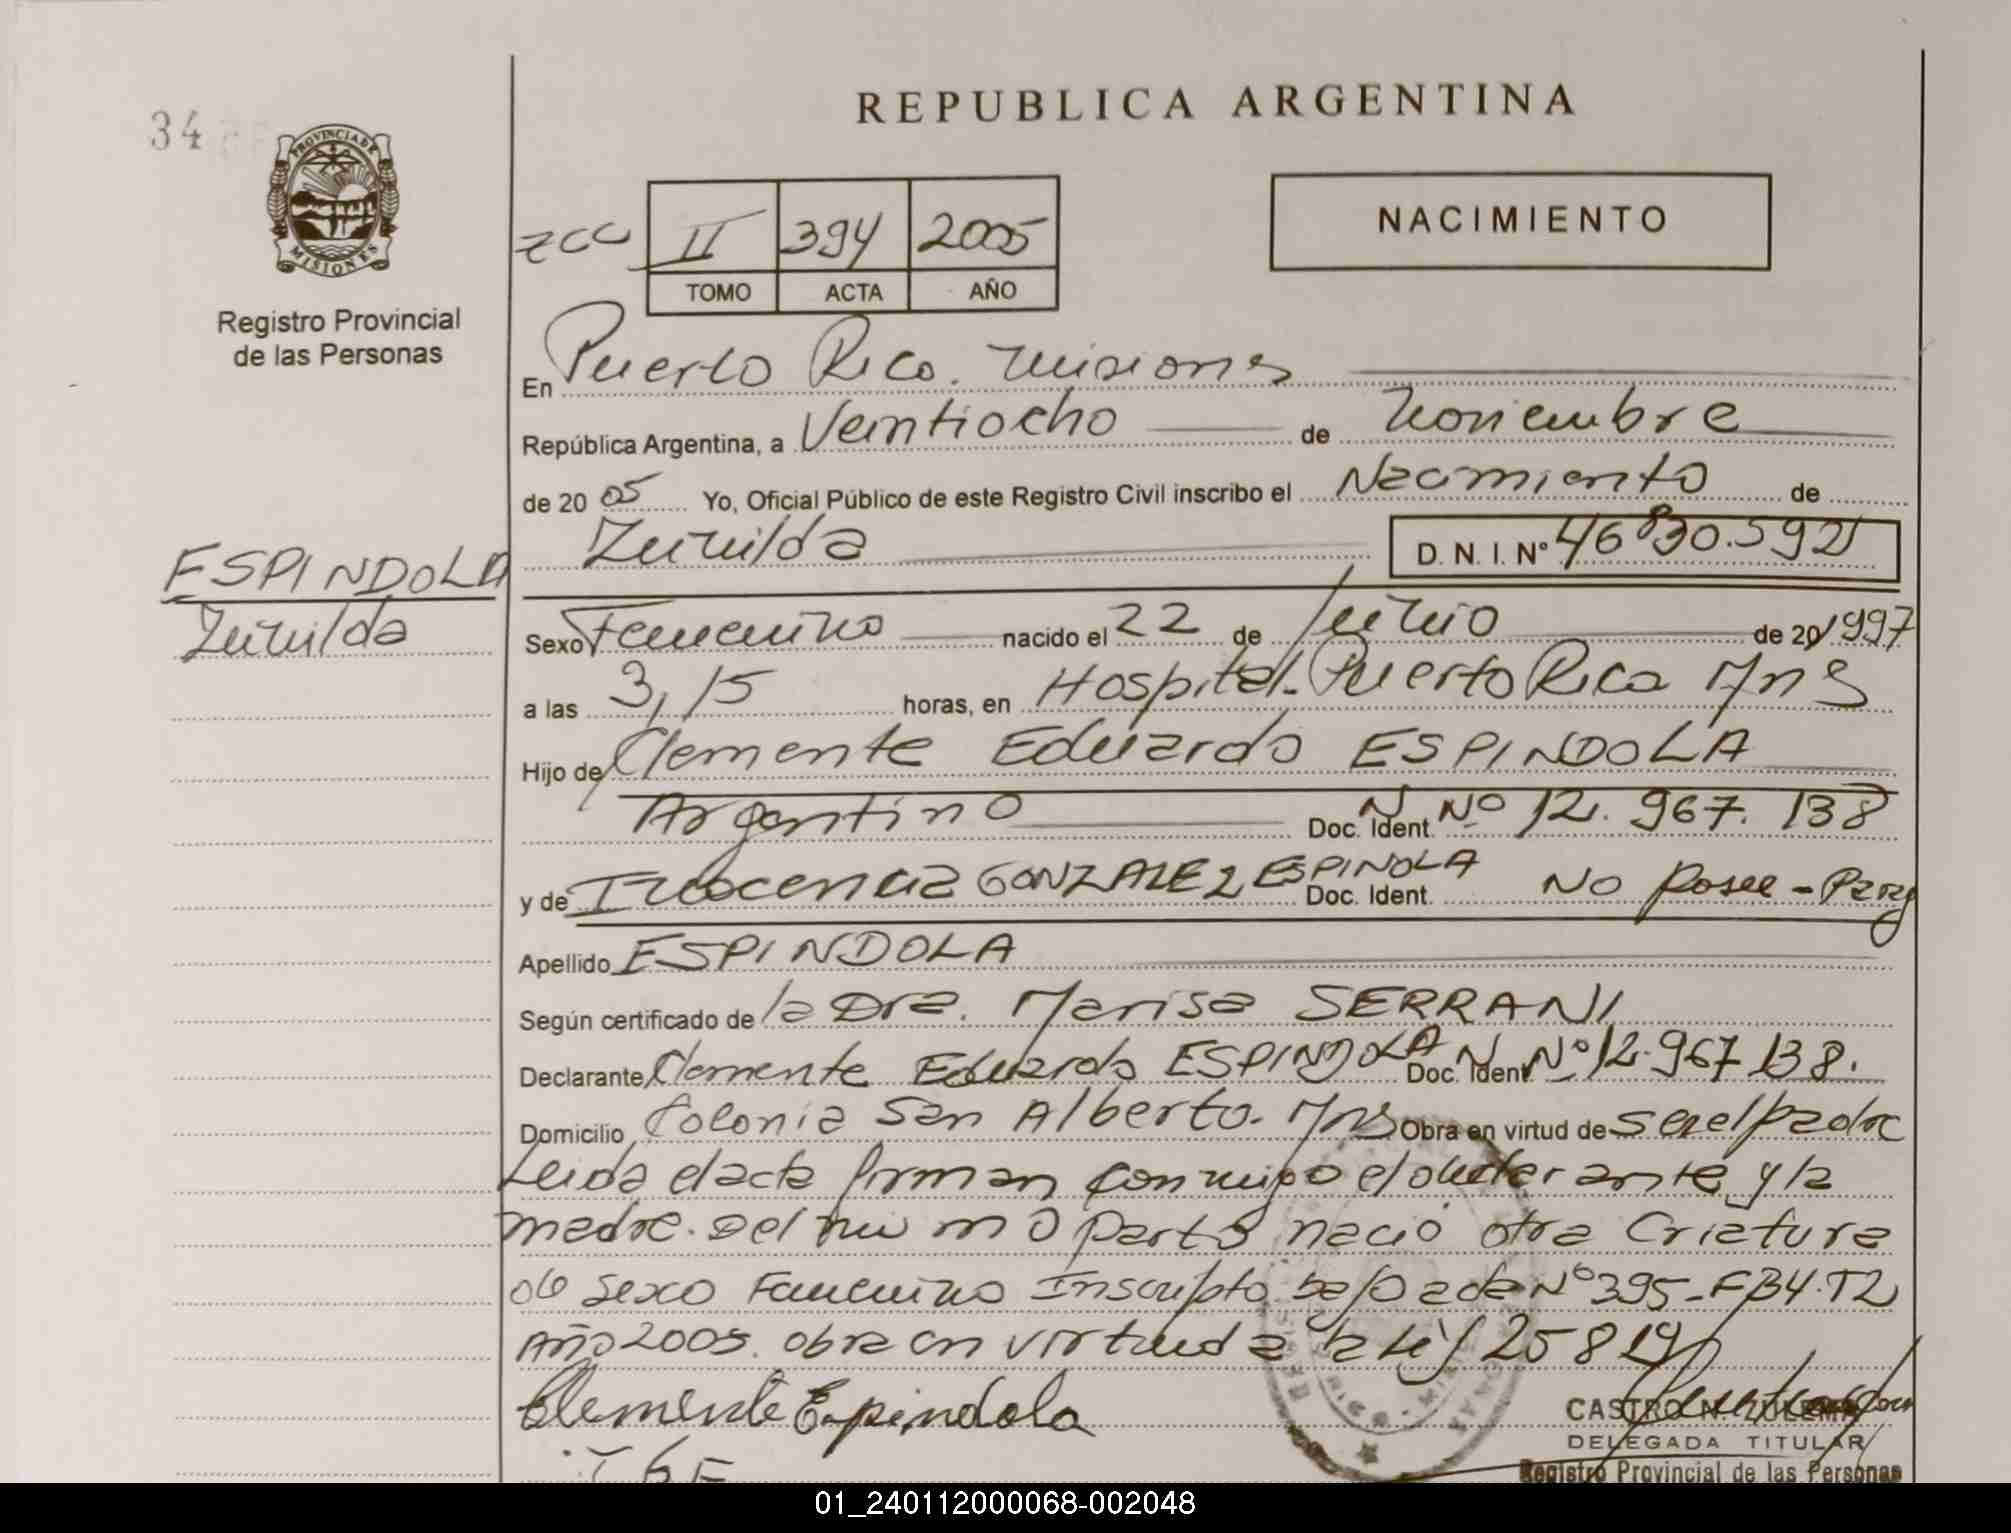 34
PROVINCIA DE
MISIONES
Registro Provincial
de las Personas
REPUBLICA ARGENTINA
II 394 2005
TOMO ACTA AÑO
NACIMIENTO
En Puerto Rico. Misiones
República Argentina, a Veintiocho de Noviembre
de 20 05 Yo, Oficial Público de este Registro Civil inscribo el Nacimiento de
Zunilda D. N. I. Nº 46830.592
ESPINDOLA
Zunilda
Sexo Femenino nacido el 22 de Junio de 20 1997
a las 3,15 horas, en Hospital. Puerto Rico Mns
Hijo de Clemente Eduardo ESPINDOLA
Argentino Doc. Ident. Nº 12.967.138
y de Inocencia GONZALEZ ESPINOLA Doc. Ident. No Posee - Parag
Apellido ESPINDOLA
Según certificado de la Dra. Marisa SERRANI
Declarante Clemente Eduardo ESPINDOLA Doc. Ident Nº 12.967.138.
Domicilio Colonia San Alberto. Mns Obra en virtud de ser el padre
Leida el acta firman conmigo el declarante y la
madre. Del mismo parto nació otra Criatura
de sexo Femenino Inscripto bajo acta Nº 395-F34.T2
Año 2005. obra en virtud a la ley 25819
Clemente Espindola
CASTRO N. ZULEMA
DELEGADA TITULAR
Registro Provincial de las Personas
01_240112000068-002048